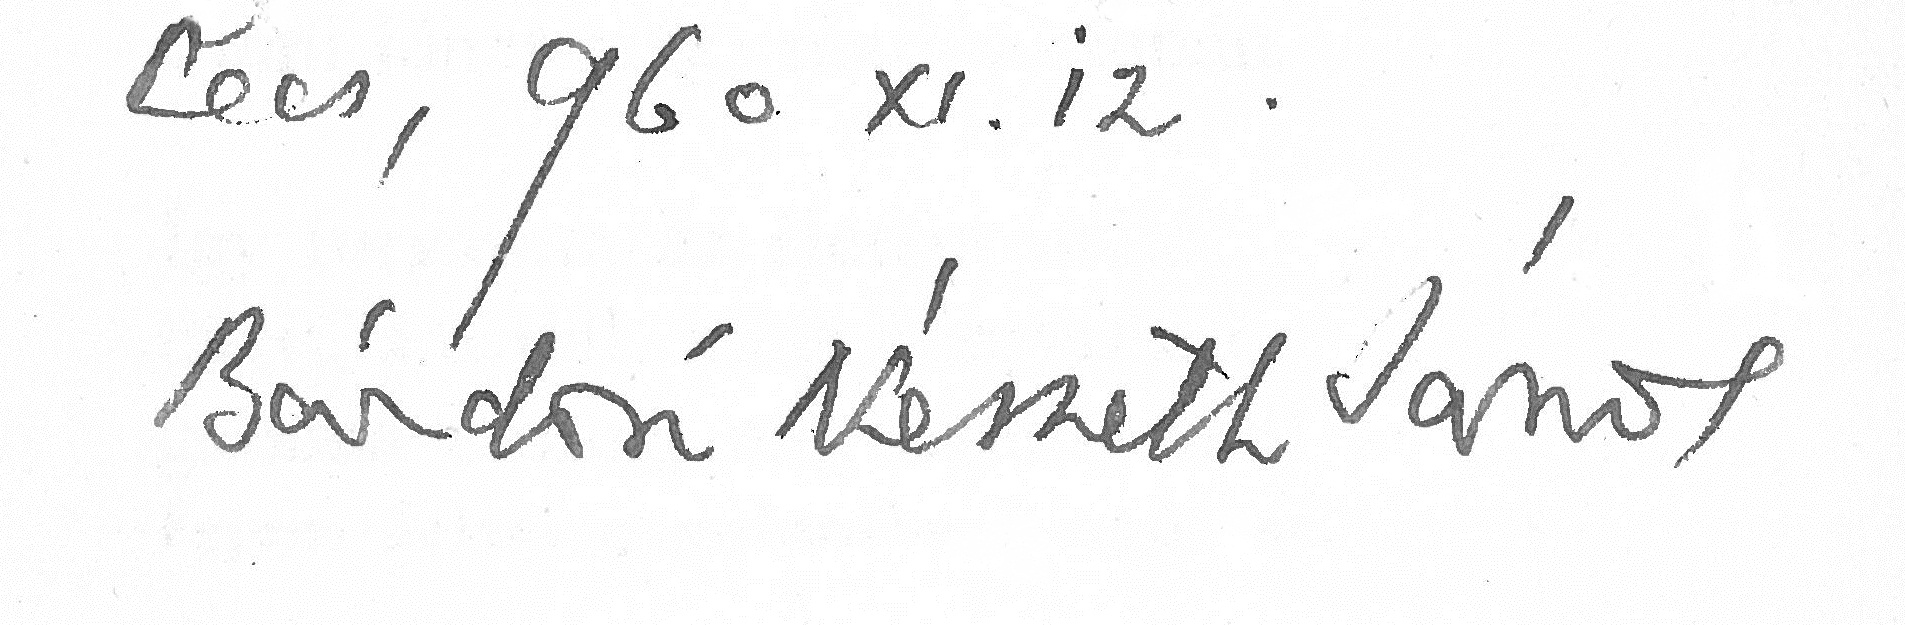 Pécs, 960 XI. 12.
Bárdosi Németh János